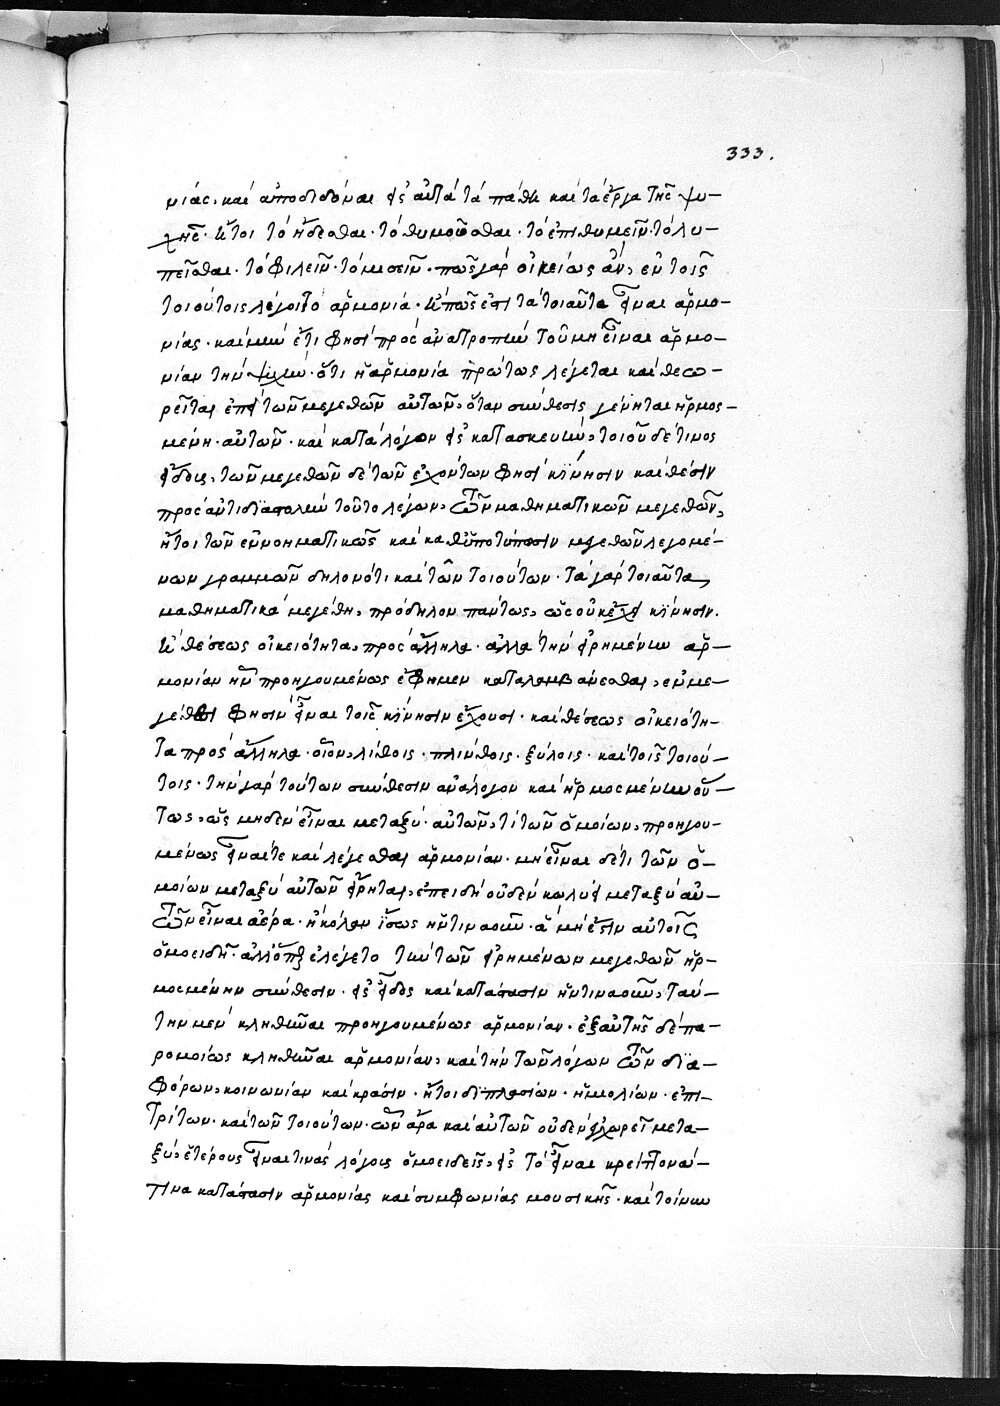 333.
μίας, καὶ ἀποδιδόναι εἰς αὐτὰ τὰ πάθη καὶ τὰ ἔργα τῆς ψυ-
χῆς. ἤτοι τὸ ἥδεσθαι· τὸ θυμοῦσθαι· τὸ ἐπιθυμεῖν· τὸ λυ-
πεῖσθαι· τὸ φιλεῖν· τὸ μισεῖν· πῶς γὰρ οἰκείως ἂν, ἐν τοῖς
τοιούτοις λέγοιτο ἁρμονία. ἢ πῶς ἐπὶ τὰ τοιαῦτα εἶναι ἁρμο-
νίας. καὶ μὴν ἔτι φησὶ πρὸς ἀνατροπὴν τοῦ μὴ εἶναι ἁρμο-
νίαν τὴν ψυχήν· ὅτι ἡ ἁρμονία πρώτως λέγεται καὶ θεω-
ρεῖται ἐπὶ τῶν μεγεθῶν αὐτῶν, ὅταν σύνθεσις γένηται ἡρμοσ-
μένη αὐτῶν· καὶ κατὰ λόγον εἰς κατασκευὴν, τοιοῦδέ τινος
εἴδους, τῶν μεγεθῶν δὲ τῶν ἐχόντων φησὶ κίνησιν καὶ θέσιν
πρὸς ἀντιδιαστολὴν τοῦτο λέγων, τῶν μαθηματικῶν μεγεθῶν,
ἤτοι τῶν ἐννοηματικῶς καὶ καθ' ὑποτύπωσιν μεγεθῶν λεγομέ-
νων γραμμῶν δηλονότι καὶ τῶν τοιούτων. τὰ γὰρ τοιαῦτα
μαθηματικὰ μεγέθη, πρόδηλον πάντως, ὡς οὐκ ἔχει κίνησιν.
ἢ θέσεως οἰκειότητα, πρὸς ἄλληλα· ἀλλὰ τὴν εἰρημένην ἁρ-
μονίαν ἣν προηγουμένως ἔφημεν καταλαμβάνεσθαι, ἐν με-
γέθεσι φησὶν εἶναι τοῖς κίνησιν ἔχουσι· καὶ θέσεως οἰκειότη-
τα πρὸς ἄλληλα· οἷον, λίθοις· πλίνθοις· ξύλοις· καὶ τοῖς τοιού-
τοις· τὴν γὰρ τούτων σύνθεσιν ἀνάλογον καὶ ἡρμοσμένην οὕ-
τως, ὡς μηδὲν εἶναι μεταξὺ αὐτῶν, τὶ τῶν ὁμοίων, προηγου-
μένως εἶναί τε καὶ λέγεσθαι ἁρμονίαν. μὴ εἶναι δέ τι τῶν ὁ-
μοίων μεταξὺ αὐτῶν εἴρηται, ἐπειδὴ οὐδὲν κωλύει μεταξὺ αὐ-
τῶν εἶναι ἀέρα· ἢ κόλλαν ἴσως ἥντιναοῦν· ἃ μή ἐστιν αὐτοῖς
ὁμοειδῆ. ἀλλ' ὅπερ ἐλέγετο τὴν τῶν εἰρημένων μεγεθῶν ἡρ-
μοσμένην σύνθεσιν· εἰς εἶδος καὶ κατάστασιν ἥντιναοῦν, ταύ-
την μὲν κληθῆναι προηγουμένως ἁρμονίαν. ἐξ αὐτῆς δὲ πα-
ρομοίως κληθῆναι ἁρμονίαν, καὶ τὴν τῶν λόγων τῶν δια-
φόρων, κοινωνίαν καὶ κρᾶσιν. ἤτοι διπλασίων· ἡμιολίων· ἐπι-
τρίτων· καὶ τῶν τοιούτων. ὧν ἄρα καὶ αὐτῶν οὐδὲν εἰσχωρεῖ μετα-
ξὺ, ἑτέρους εἶναί τινας λόγους ὁμοειδεῖς, εἰς τὸ εἶναι κρείττονά
τινα κατάστασιν ἁρμονίας καὶ συμφωνίας μουσικῆς. καὶ τοίνυν